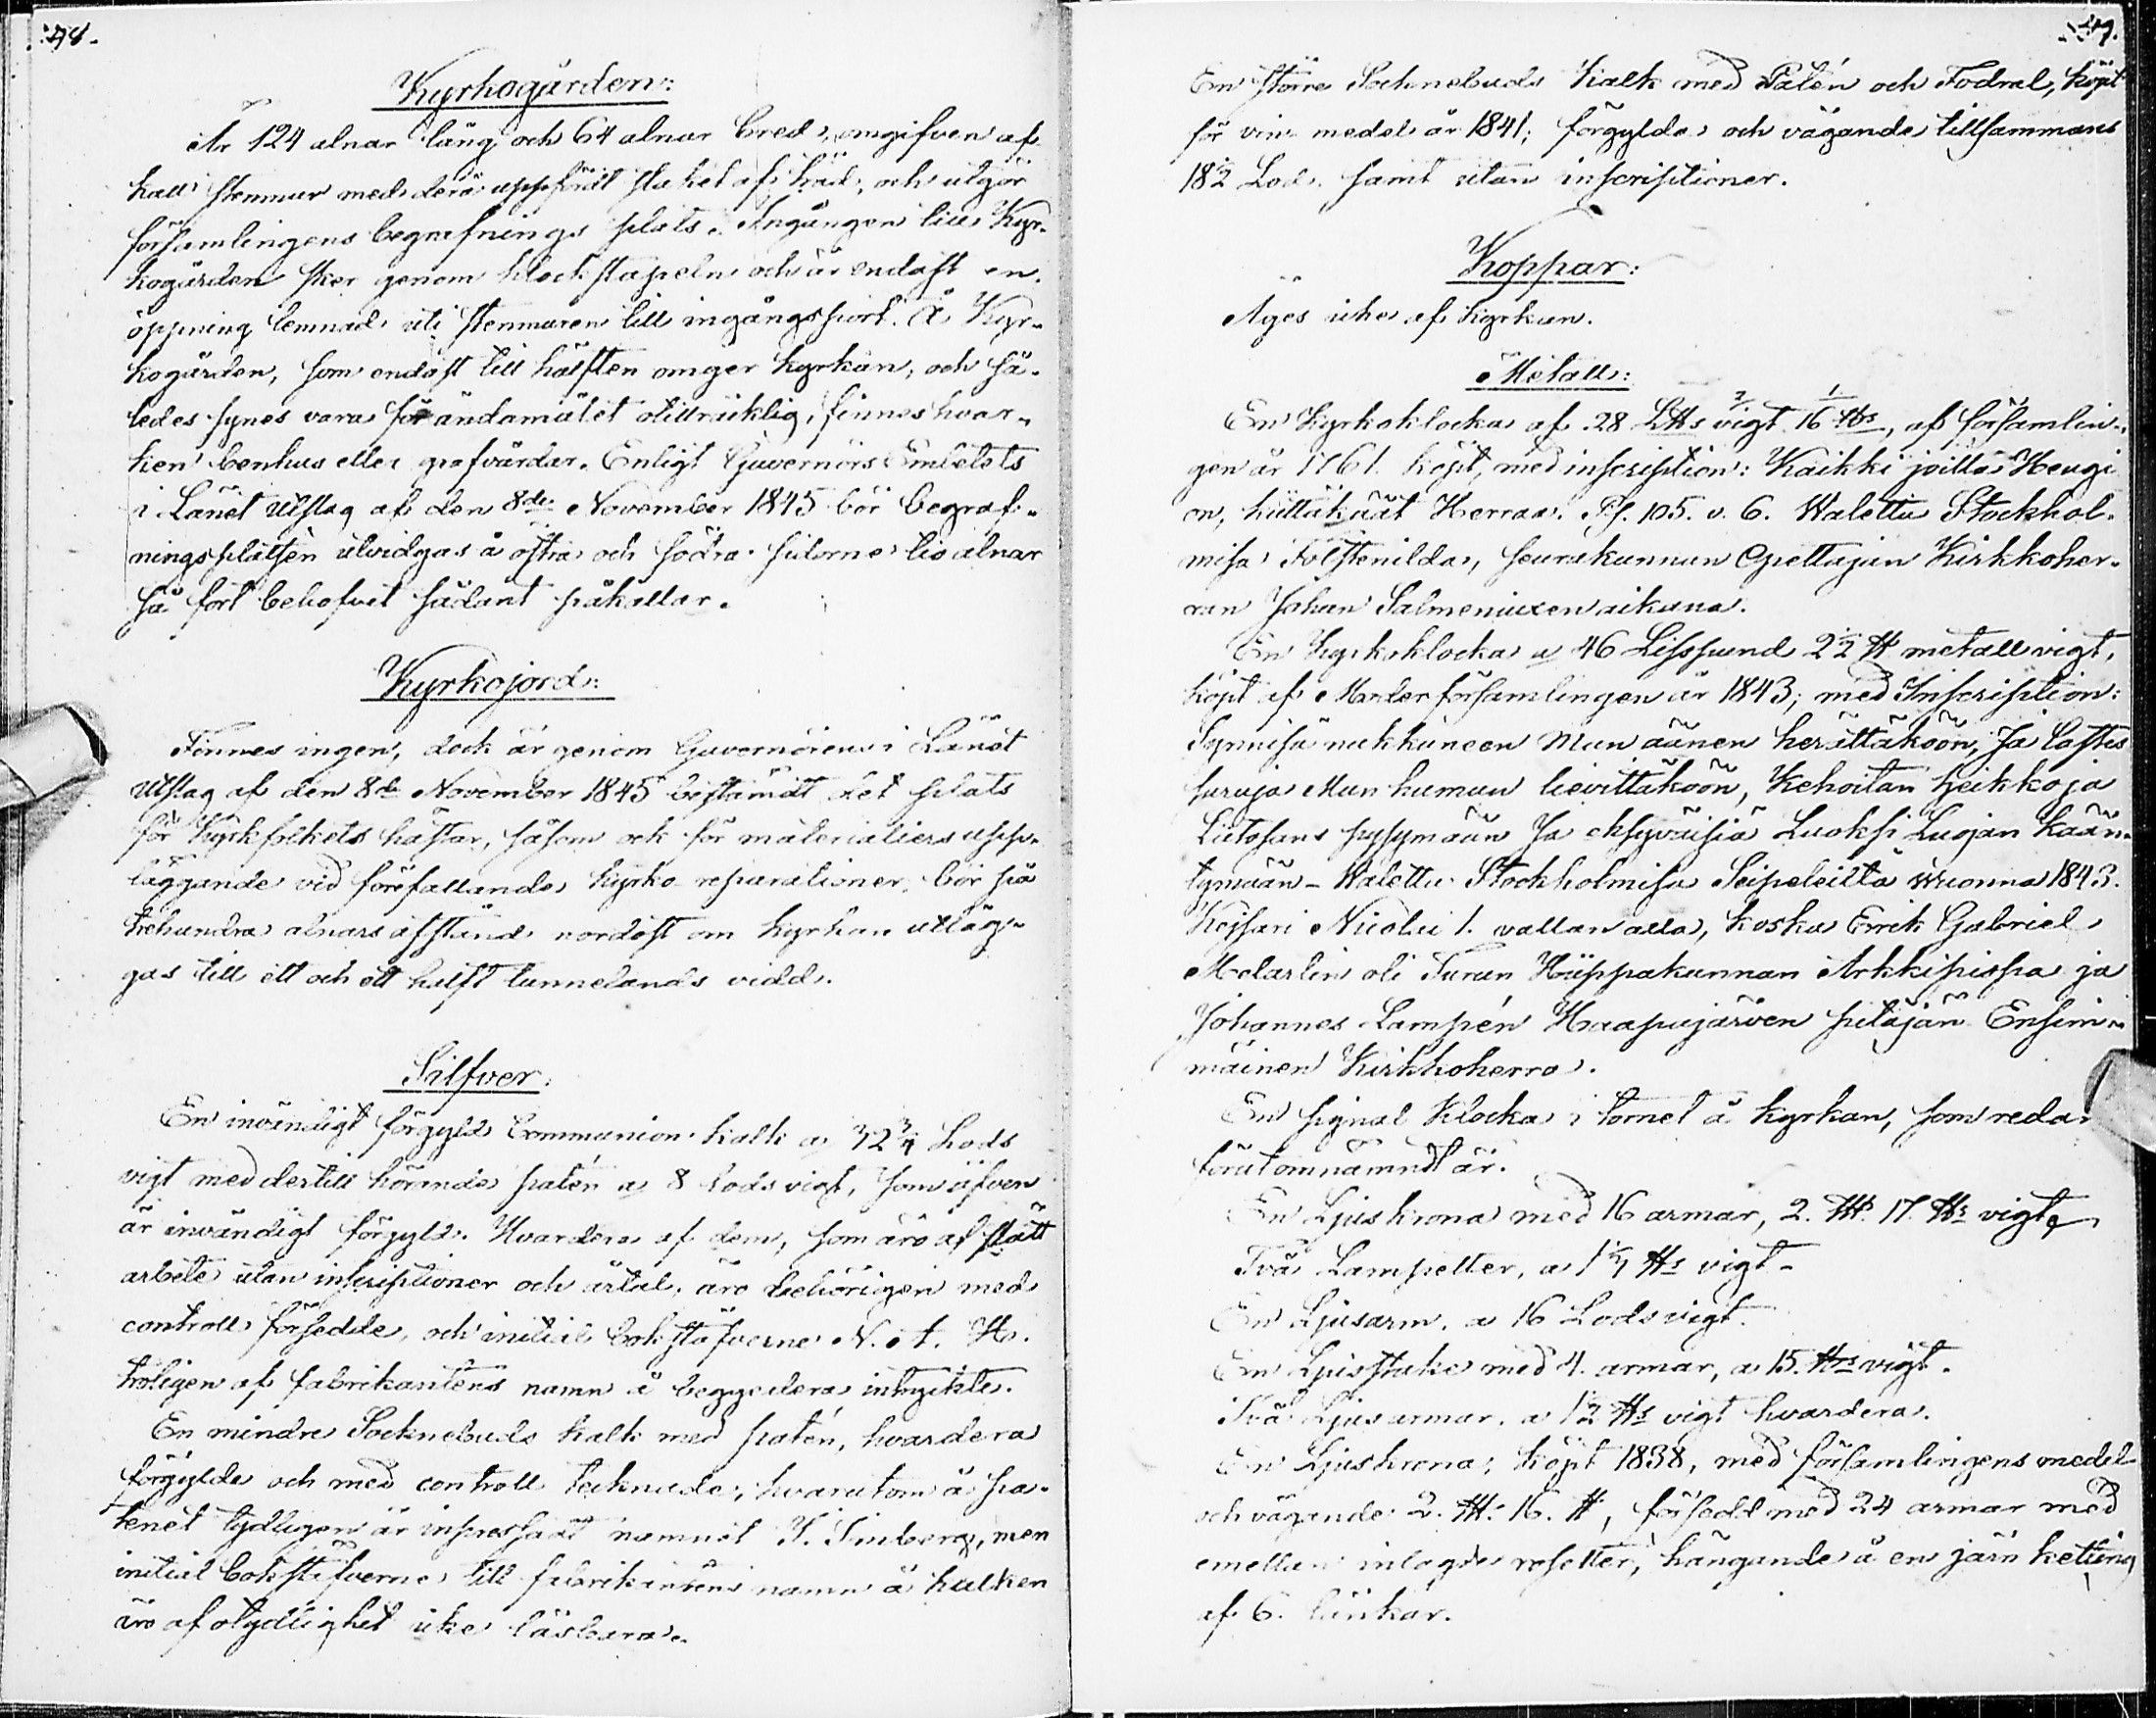 48.
Kyrkogården:
Är 124 alnar lång och 64 alnar bred, omgifven af
kall stenmur med derå uppfördt staket af träd, och utgör
församlingens begrafnings plats. Ingången till Kyr-
kogården sker genom klockstapeln och är endast en
öppning lemnad uti stenmuren till ingångsport. Å Kyr-
kogården, som endast till hälften omger kyrkan, och så-
ledes synes vara för ändamålet otillräcklig, finnes hvar-
ken benhus eller grafvårdar. Enligt Guvernörs Embetets
i Länet Utslag af den 8de November 1845 bör begraf-
ningsplatsen utvidgas å östra och södra sidorne tio alnar
så fort behofvet sådant påkallar.
Kyrkojord:
Finnes ingen, dock är genom Guvernörens i Länet
Utslag af den 8de November 1845 bestämdt det plats
för kyrkfolkets hästar, såsom ock för materialiers upp-
läggande vid förefallande kyrko reparationer, bör på
trehundra alnars afstånd nordost om kyrkan utläg-
gas till ett och ett halft tunnelands vidd.
Silfver:
En invändigt förgyld Communion kalk a 32 3/4 Lods
vigt med dertill hörande patén a 8 lods vigt, som äfven
är invändigt förgyld. Hvardera af dem, som äro af slätt
arbete utan inscriptioner och årtal, äro behörigen med
controll försedde, och initial bokstäfverne N. A. H.
troligen af fabrikantens namn å beggedera intryckte.
En mindre Socknebuds kalk med patén, hvardera
förgylde och med controll tecknade, hvarutom å pa-
tenet tydligen är inpressadt namnet J. Simberg, men
initial bokstäfverne till fabrikantens namn å kalken
äro af otydlighet icke läsbara.
49.
En större Socknebuds Kalk med Patén och Fodral, köpt
för vin medel år 1841; förgylde och vägande tillsammans
18 1/2 Lod. samt utan inscriptioner.
Koppar:
Äges icke af kyrkan.
Metall:
En Kyrkoklocka af 28 L℔s 2/ vigt 1/ 16 ℔s, af församlin-
gen år 1761. köpt, med inscription: Kaikki joilla Hengi
on, kiittäkäät Herraa. Ps. 105. v. 6. Walettu Stockhol-
misa Folstenilda, seurakunnan Opettajan Kirkkoher-
ran Johan Salmeniuxen aikana.
En Kyrkoklocka a 46 Lisspund 2 1/2 ℔ metall vigt,
köpt af Moderförsamlingen år 1843; med Inscription:
Synnisä nukkuneen Mun äänen herättäköön, Ja lastus
suruja Mun humun lievittäköön, Kehoitan heikkoja
Liitosans pysymään Ja eksyväisiä Luoksi Luojan Kään-
tymään – Walettu Stockholmisa Seipeleiltä Wuonna 1843.
Keisari Nicolai 1. vallan alla, koska Errik Gabriel
Melartin oli Turun Hiippakunnan Arkkipispa ja
Johannes Lampén Haapajärven pitäjän Ensim-
mäinen Kirkkoherra.
En signal klocka i tornet å kyrkan, som reda
förut omnämndt är.
En Ljuskrona med 16 armar, 2. L℔. 17. ℔s vigt
Två Lampetter, a 1 1/4 ℔s vigt.
En Ljusarm. a 16 Lods vigt.
En Ljusstake med 4. armar, a 15. ℔s vigt.
Två Ljusarmar. a 1 1/2 ℔s vigt hvardera.
En Ljuskrona, köpt 1838, med församlingens medel
och vägande 2. L℔. 16. ℔, försedd med 24 armar med
emellan inlagda rosetter, hängande å en järn ketting
af 6. länkar.